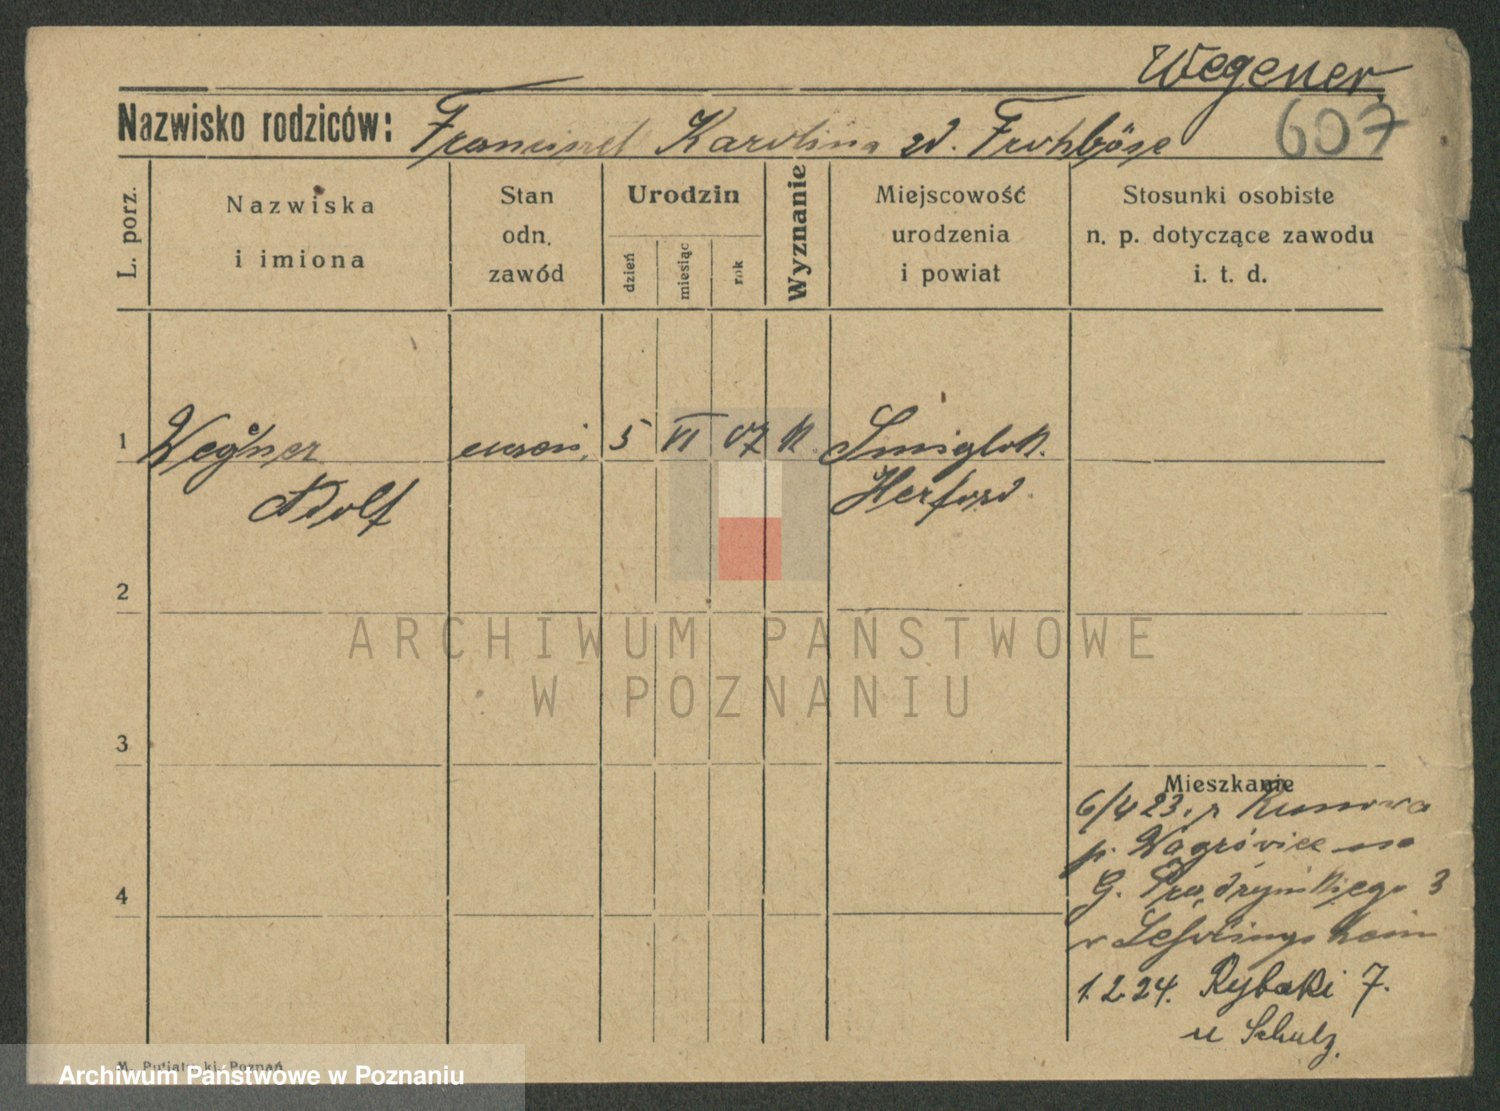 Wegener.
Nazwisko rodziców: Franciszek Karolina zd. Frohböse 607
L. porz.
Nazwiska
i imiona
Stan
odn.
zawód
Urodzin
dzień
miesiąc
rok
Wyznanie
Miejscowość
urodzenia
i powiat
Stosunki osobiste
n. p. dotyczące zawodu
i. t. d.
1 Wegener uczeń, 5 VI 07 k.
Adolf Herford
2
ARCHIWUM PAŃSTWOWE
W POZNANIU
3
Mieszkanie
6/4 23. z Runowa
p. Wągrówiec na
G. Prądzyńskiego 3
4
1.2.24. Rybaki 7.
u Schulz.
M. Putiatycki, Poznań
Archiwum Państwowe w Poznaniu